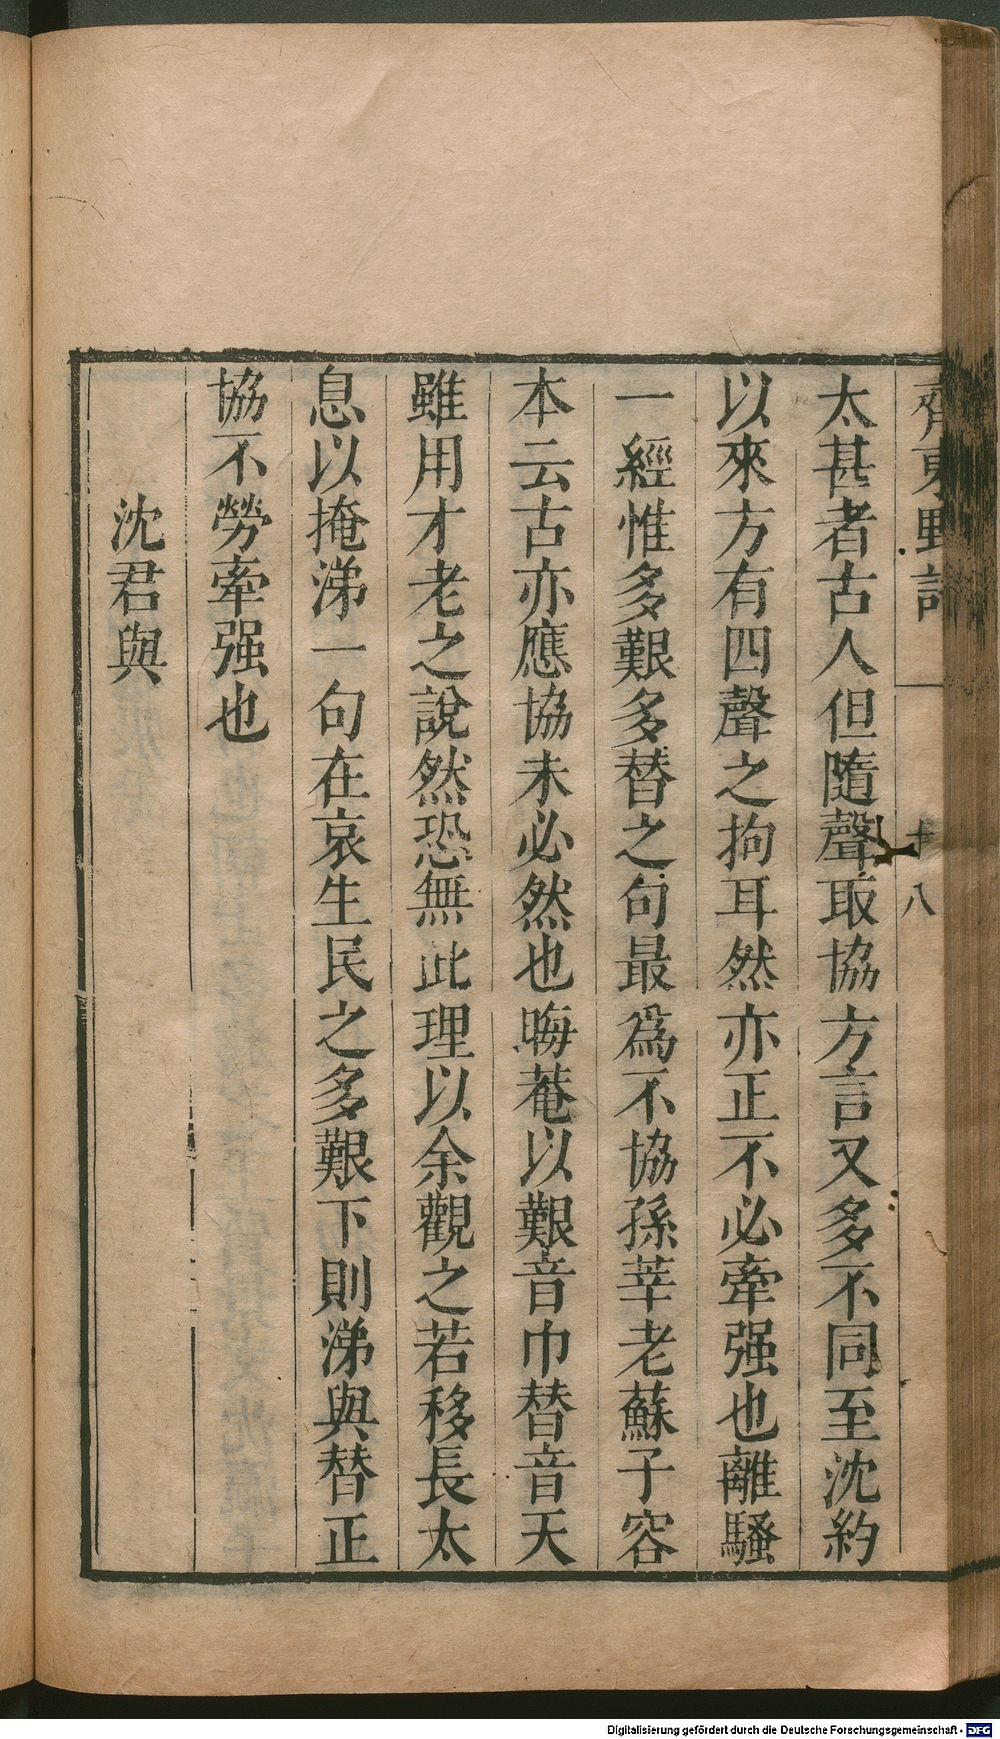 齊東野語
十八
太甚者古人但隨聲取協方言又多不同至沈約
以來方有四聲之拘耳然亦正不必牽强也離騷
一經惟多艱多替之句最爲不協孫莘老蘇子容
本云古亦應協未必然也晦菴以艱音巾替音天
雖用才老之說然恐無此理以余觀之若移長太
息以掩涕一句在哀生民之多艱下則涕與替正
協不勞牽强也
沈君與
Digitalisierung gefördert durch die Deutsche Forschungsgemeinschaft - DFG